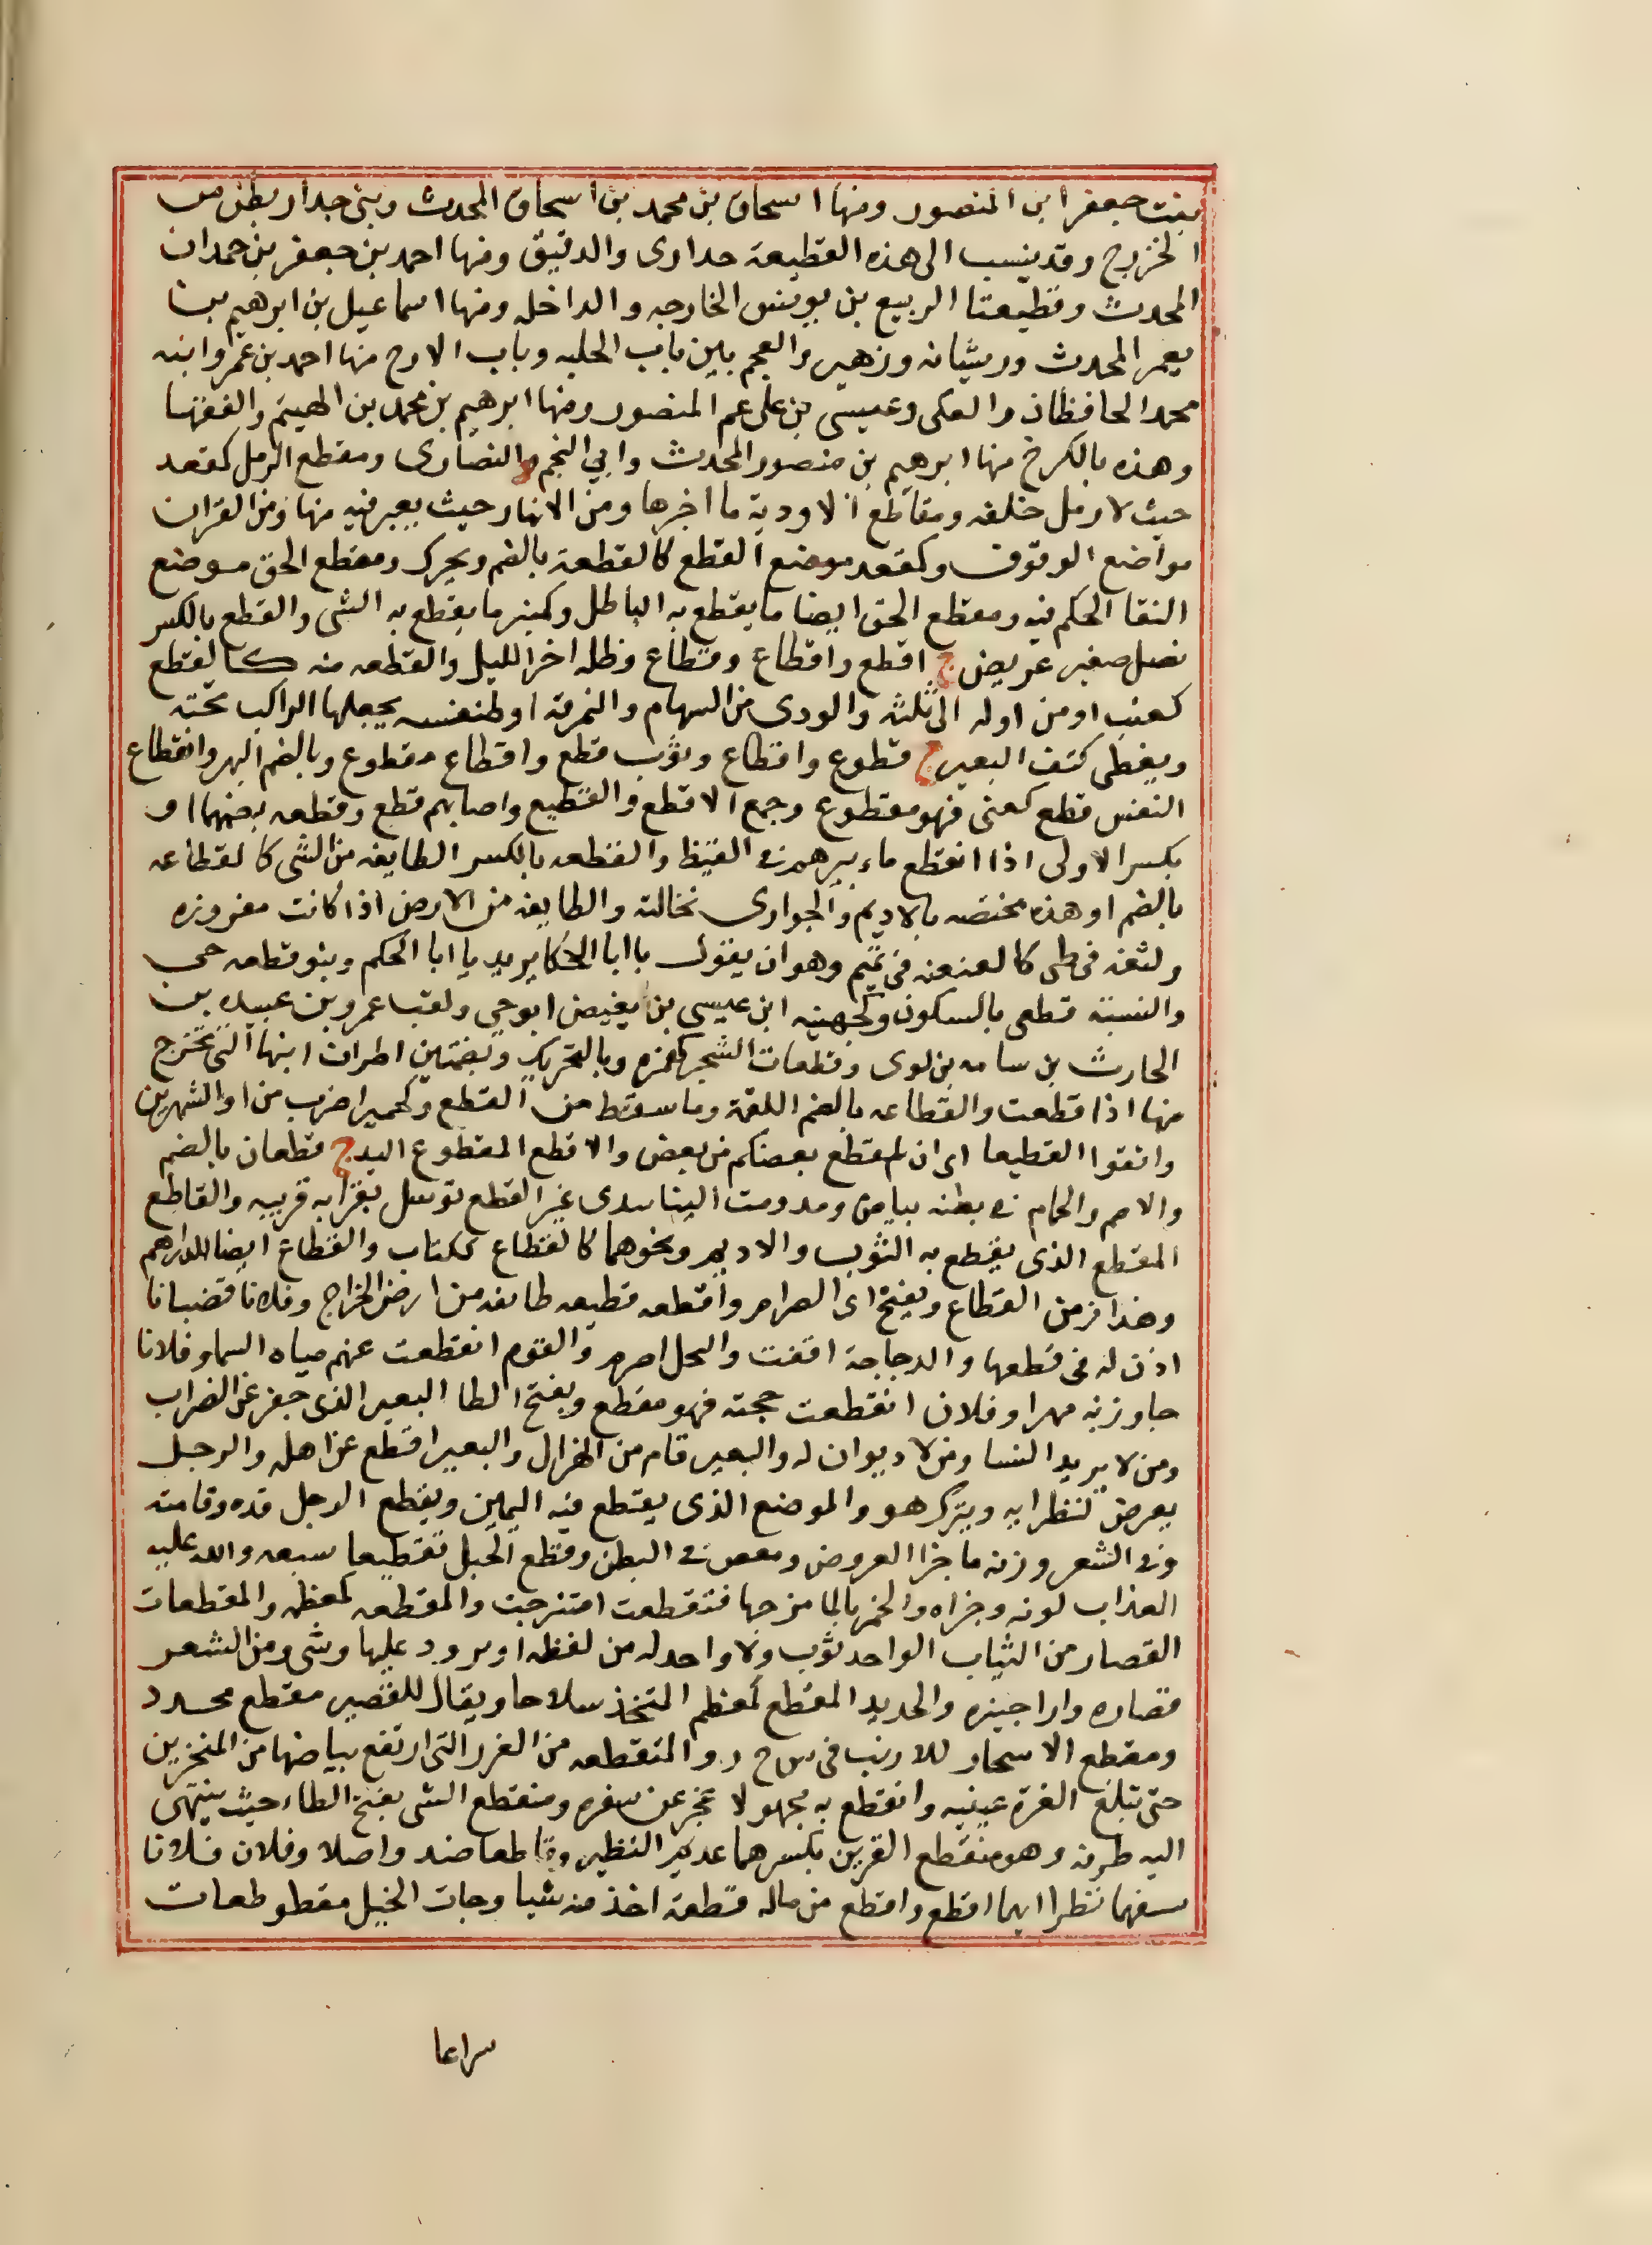 بنت جعفر ابن المنصور ومنها اسحاق بن محمد بن اسحاق المحدث وبنى جدار بطن من
الخزرج وقد ينسب الى هذه القطيعة جدارى والدقيق ومنها احمد بن جعفر بن حمدان
المحدث وقطيعتا الربيع بن يونس الخارجه والداخله ومنها اسماعيل بن ابرهيم بن
يعمر المحدث وريشانه وزهير والعجم بين باب الحلبه وباب الازج منها احمد بن عمر وابنه
محمد الحافظان والعكى وعيسى بن على عم المنصور ومنها ابرهيم بن محمد بن الهيثم والفقها
وهذه بالكرخ منها ابرهيم بن منصور المحدث وابي النجم والنصارى ومقطع الرمل كمقعد
حيث لا رمل خلفه ومقاطع الاودية ما اخرها ومن الانهار حيث يعبر فيه منها ومن القران
مواضع الوقوف وكمقعد موضع القطع كالقطعة بالضم ويحرك ومقطع الحق موضع
التقا الحكم فيه ومقطع الحق ايضا ما يقطع به الباطل وكمنبر ما يقطع به الشى والقطع بالكسر
نصل صغير عريض ج اقطع واقطاع وقطاع وظله اخر الليل والقطعه منه كالقطع
كعنب او من اوله الى ثلثه والودى من السهام والنمرقة او طنفسه يجعلها الراكب تحته
ويغطى كتف البعير ج قطوع واقطاع وثوب قطع واقطاع مقطوع وبالضم البهر وانقطاع
النفس قطع كعنى فهو مقطوع وجمع الاقطع والقطيع واصابهم قطع وقطعه بضمهما او
بكسر الاولى اذا انقطع ماء بيرهم في القيظ والقطعه بالكسر الطايفه من الشى كالقطاعه
بالضم او هذه مختصه بالاديم والجوارى نخالته والطايفه من الارض اذا كانت مفروزه
ولثغه فى طى كالعنعنه فى تميم وهو ان يقول يا ابا الحكا يريد يا ابا الحكم وبنو قطعه حى
والنسبة قطعى بالسكون وكجهينه ابن عيسى بن بغيض ابو حي ولقب عمرو بن عبيده بن
الحارث بن سامه بن لوى وقطعات الشجر كهمزه وبالتحريك وبضمتين اطراف ابنها التى تخرج
منها اذا قطعت والقطاعه بالضم اللقمة وما سقط من القطع وكحميرا ضرب من او الشهرين
واتقوا القطيعا اى ان لم يقطع بعضكم من بعض والاقطع المقطوع اليد ج قطعان بالضم
والاصم والحمام في بطنه بياض ومد ومت الينا بيدى غير القطع توسل بقرابه قريبه والقاطع
المقطع الذى يقطع به الثوب والاديم ونحوهما كالقطاع ككتاب والقطاع ايضا الدراهم
وهذا زمن القطاع ويفتح اى الصرام واقطعه قطيعه طايفه من ارض الخراج وفلانا قضبانا
اذن له فى قطعها والدجاجة اقفت والنخل اصرم والقوم انقطعت عنهم مياه السما وفلانا
جاوز به مهرا وفلان انقطعت حجته فهو مقطع وبفتح الطا البعير الذى جفر عن الضراب
ومن لا يريد النسا ومن لا ديوان له والبعير قام من الهزال والبعير اقطع عن اهله والرجل
يعرض لنظرايه ويترك هو والموضع الذى يقطع فيه اليمين ويقطع الرجل قده وقامته
وفي الشعر وزنه ما جزا العروض ومغص في البطن وقطع الخيل تقطيعا سبقه والله عليه
العذاب لونه وجزاه والخمر بالما مزجها فتقطعت امتزجت والمقطعه كمعظمه والمقطعات
القصار من الثياب الواحد ثوب ولا واحد له من لفظه او برود عليها وشى ومن الشعر
قصاره واراجيزه والحديد المقطع كمعظم المتخذ سلاحا ويقال للقصير مقطع مجدد
ومقطع الاسحار للارنب فى س ح ر والمتقطعه من الغرر التى ارتفع بياضها من المنخرين
حتى تبلغ الغرة عينيه وانقطع به مجهولا عجز عن سفره ومنقطع الشى بفتح الطاء حيث ينتهى
اليه طرفه وهو منقطع القرين بكسرهما عديم النظير وقاطعا ضد واصلا وفلان فلانا
بسيفهما نظرا ايهما اقطع واقطع من ماله قطعة اخذ منه شيا وجات الخيل مقطوطعات
سراعا